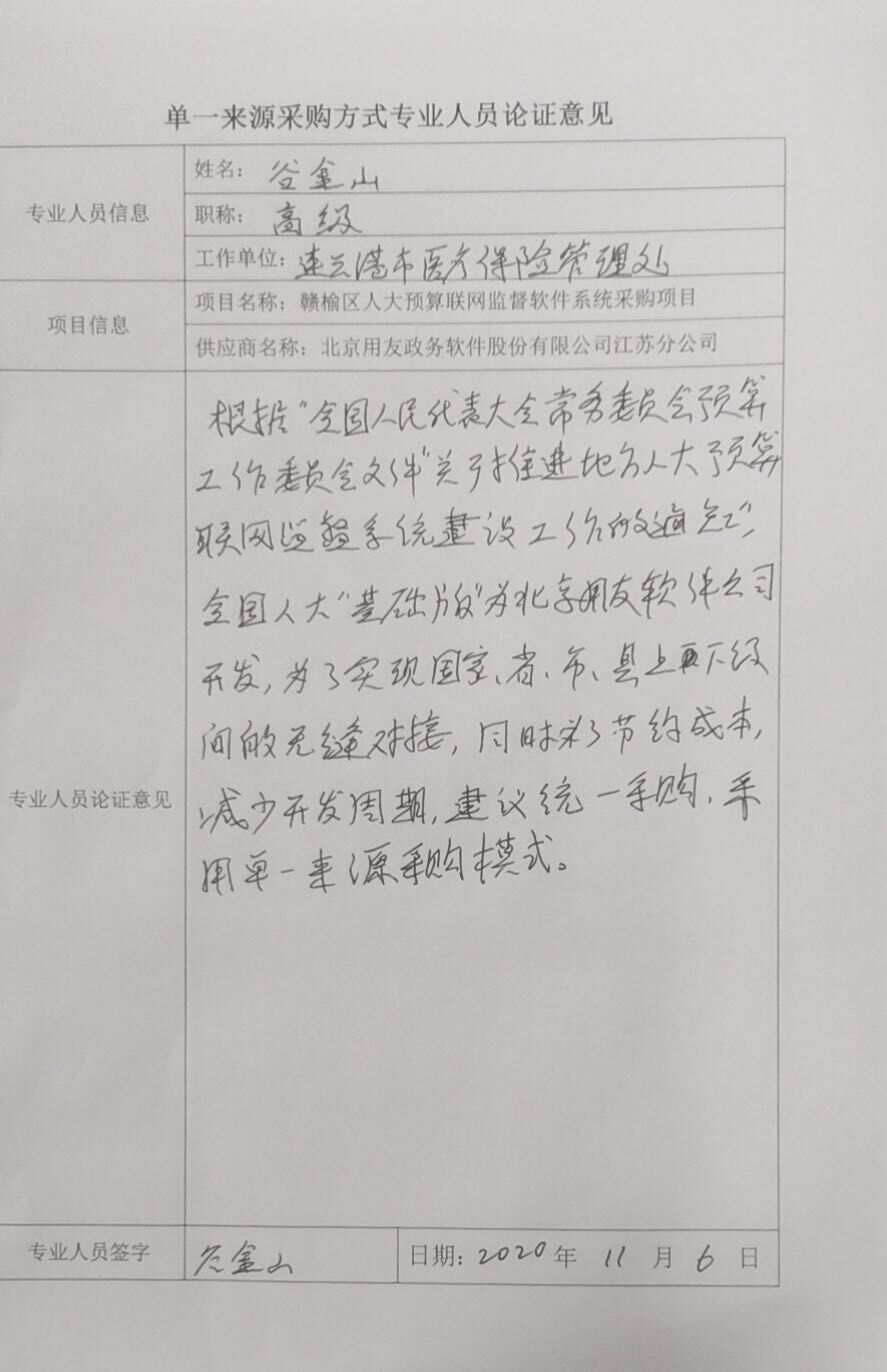 单一来源采购方式专业人员论证意见
专业人员信息
姓名：谷金山
职称：高级
工作单位：连云港市医疗保险管理处
项目信息
项目名称：赣榆区人大预算联网监督软件系统采购项目
供应商名称：北京用友政务软件股份有限公司江苏分公司
专业人员论证意见
根据"全国人民代表大会常务委员会预算
工作委员会文件"关于推进地方人大预算
联网监督系统建设工作的通知",
全国人大"基础版"为北京用友软件公司
开发,为了实现国家、省、市、县上下级
间的无缝对接,同时为了节约成本,
减少开发周期,建议统一采购,采
用单一来源采购模式。
专业人员签字
谷金山
日期：2020年 11 月 6 日